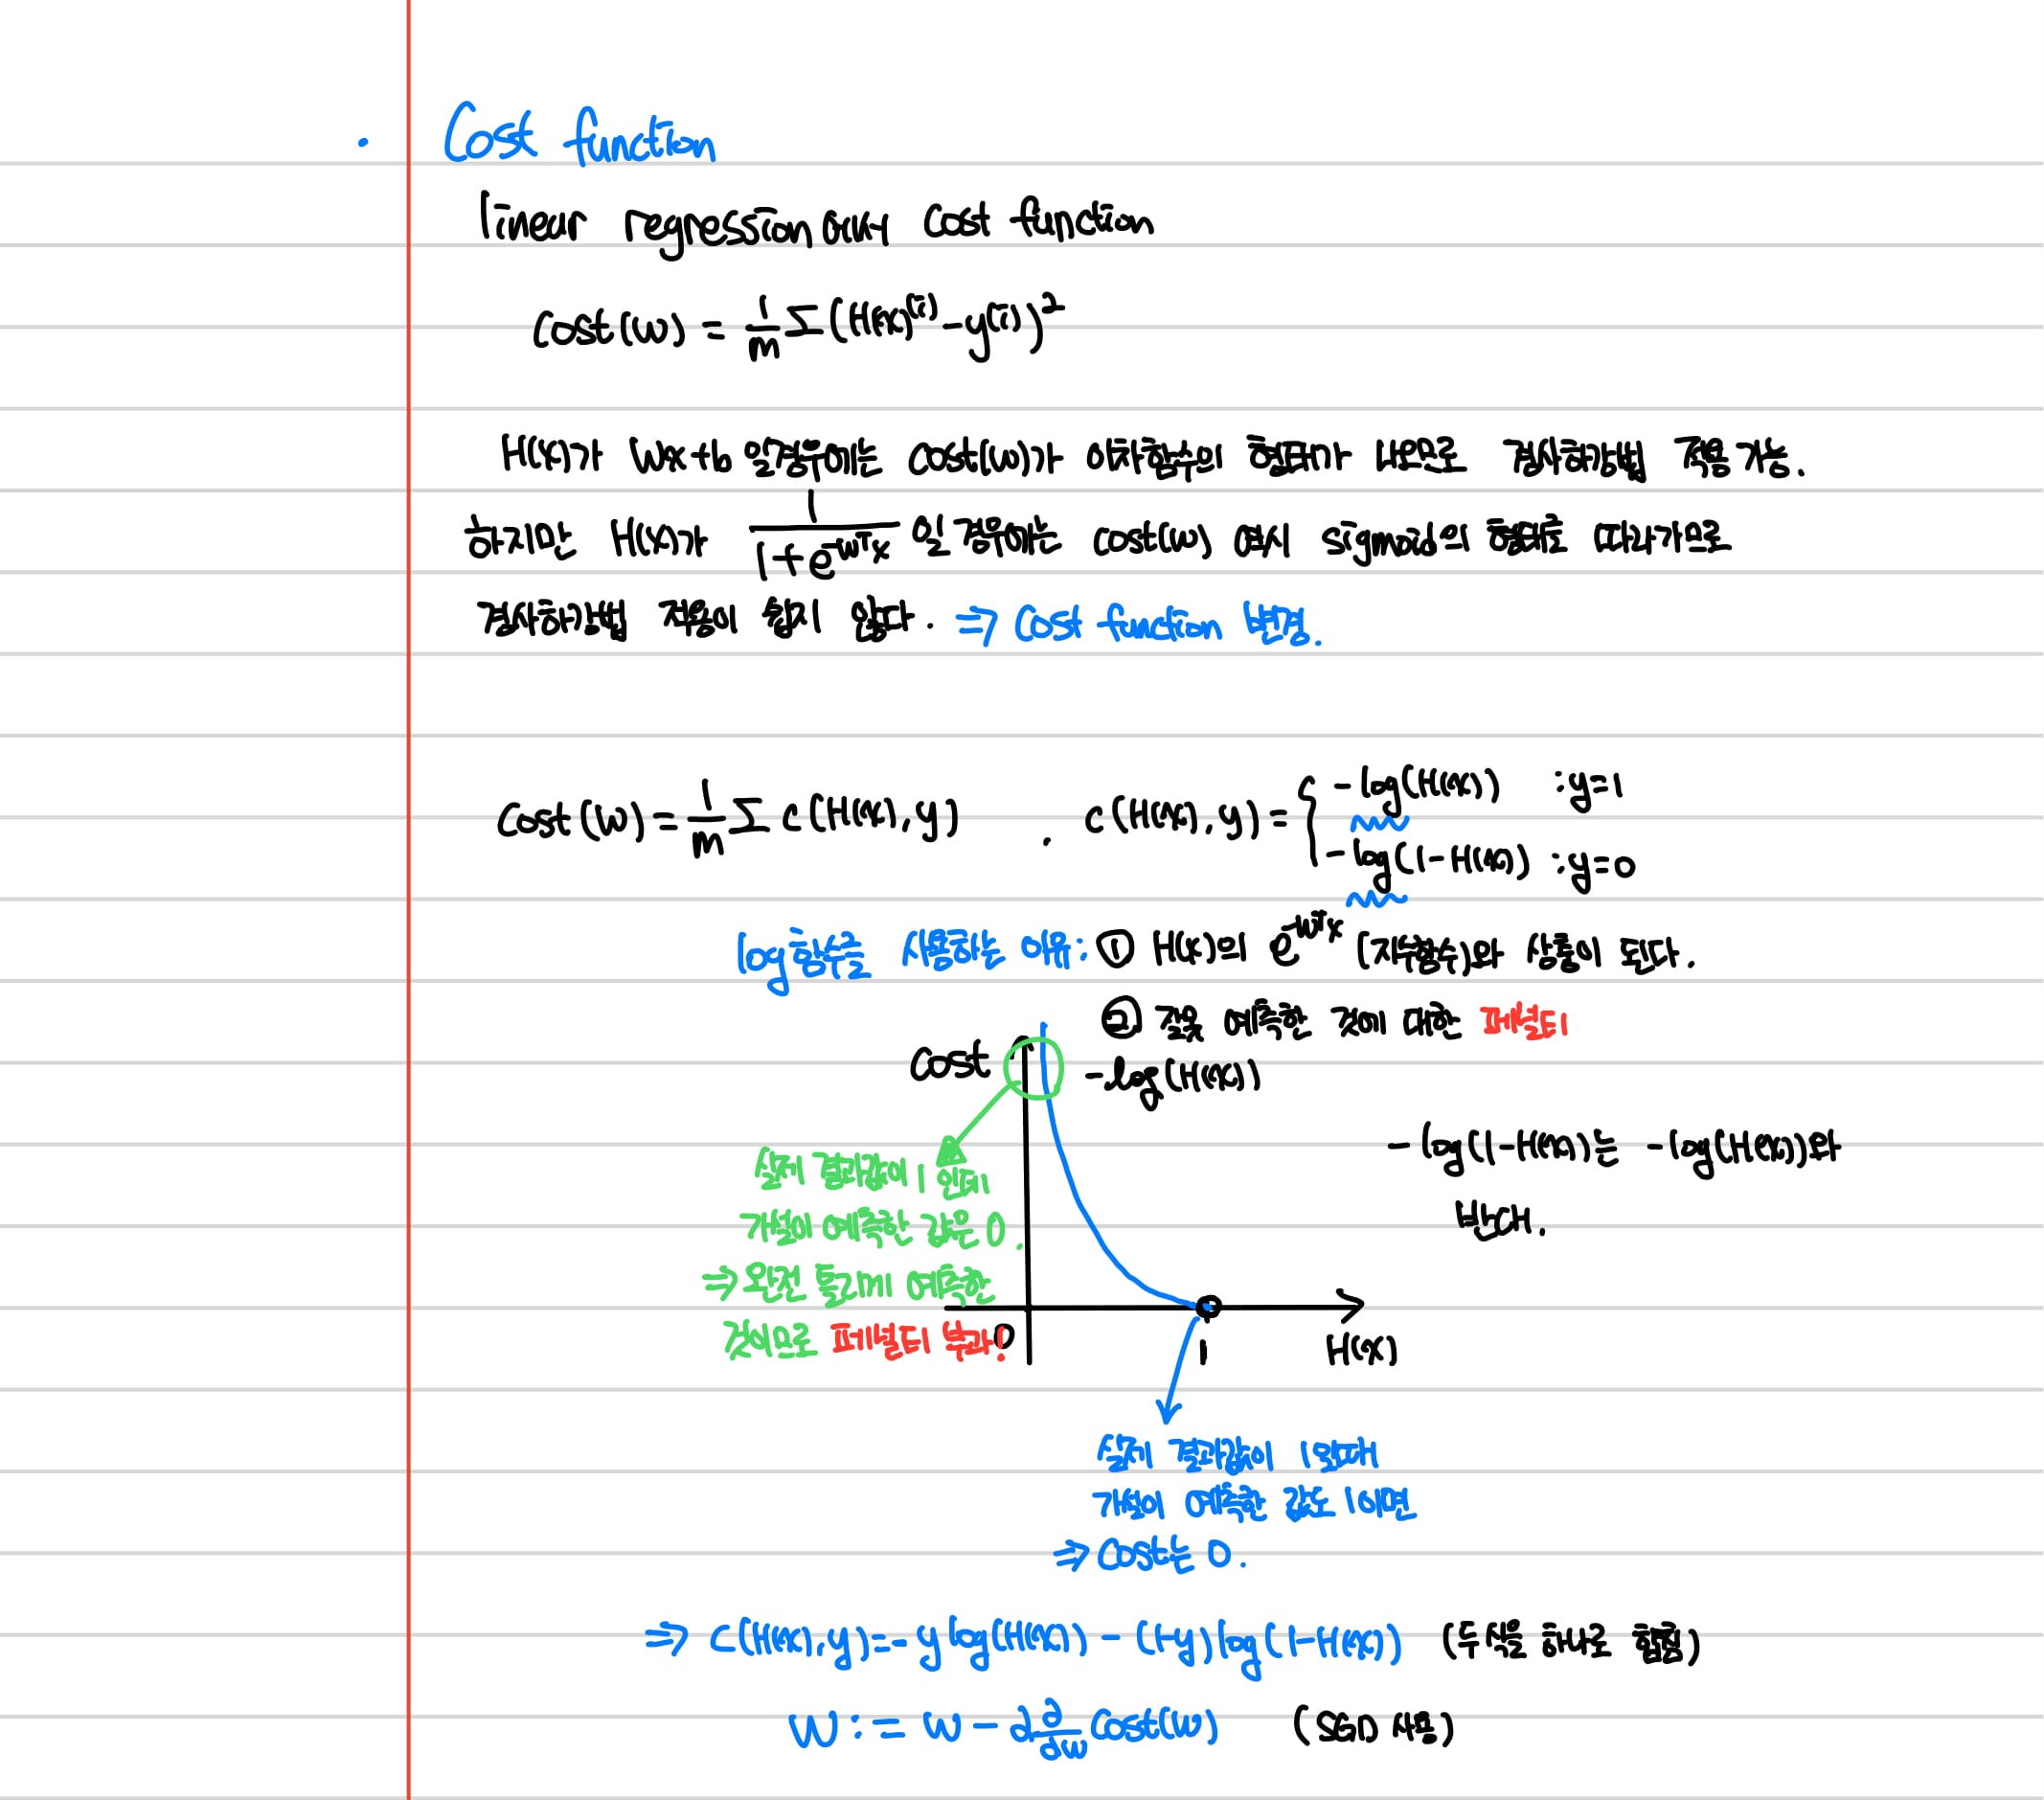 · Cost function
linear regression에서 cost function
cost(w) = 1/m Σ (H(x)^(i) - y^(i))²
H(x)가 Wx+b 일경우에는 cost(w)가 이차함수의 형태가 나오므로 경사하강법 적용 가능.
하지만 H(x)가 1/(1+e^-wᵀx) 일 경우에는 cost(w) 역시 sigmoid의 형태를 따라가므로
경사하강법 적용이 쉽지 않다. ⇒ Cost function 변경.
cost(w) = 1/m Σ c(H(x), y) . c(H(x), y) = { -log(H(x)) : y=1
-log(1-H(x)) : y=0
log함수를 사용하는 이유: ① H(x)의 e^-wᵀx (지수함수)와 상충이 된다.
② 잘못 예측한 것에 대한 페널티
cost
-log(H(x))
-log(1-H(x))는 -log(H(x))와
반대.
실제 결과값이 1 인데
가설이 예측한 값은 0.
⇒ 완전 틀리게 예측한
것이므로 페널티 부과!
0
1
H(x)
실제 결과값이 1일때
가설이 예측한 값도 1이면
⇒ Cost는 0.
⇒ C(H(x), y) = -y log(H(x)) - (1-y) log(1-H(x)) (두 식을 하나로 합침)
W := W - α ∂/∂w Cost(w) (SGD 사용)